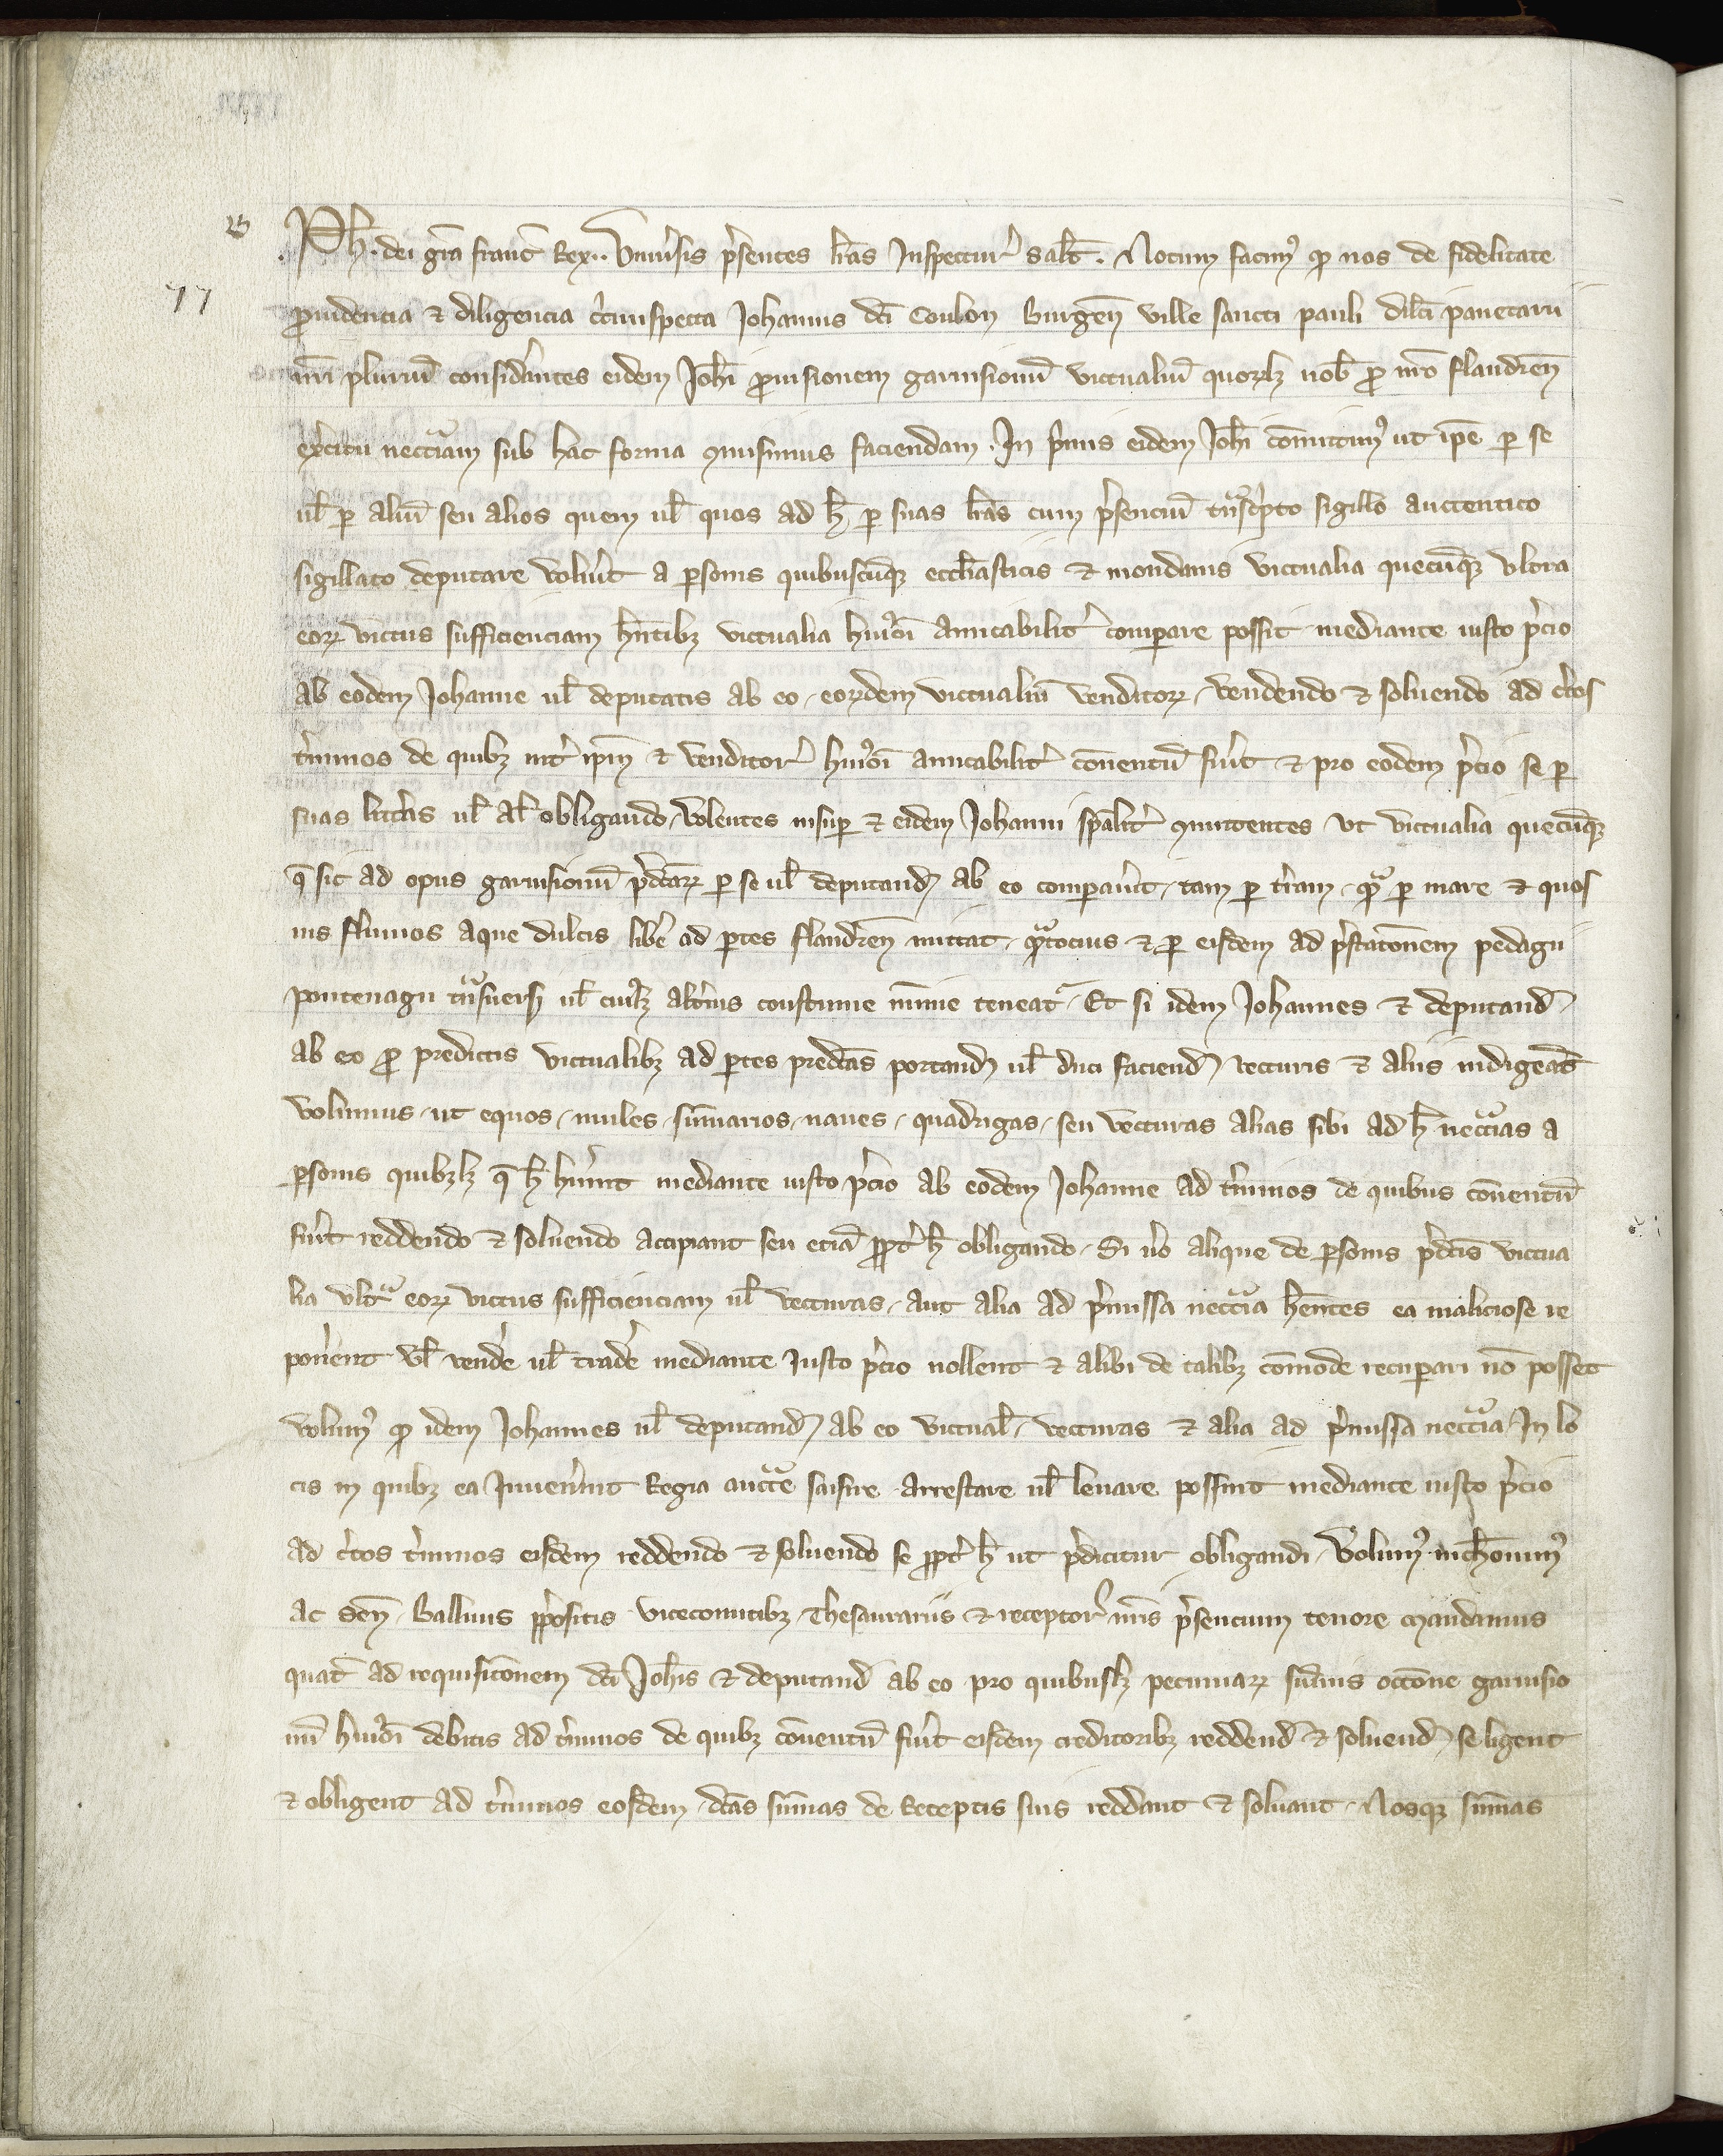 .Ph. dei gr̃a franc̃ Rex. Vniũsis p̃sentes lr̃as Inspectur̃ salt̃. Notum facimꝰ ꝙ nos de fidelitate
77
ꝓuidencia ⁊ diligencia c̃cumspecta Johannis dc̃i Coulon Burgeñ ville sancti pauli dilc̃i panetarii
nr̃i plurimũ consid̃antes eidem Joh̃i ꝓuisionem garnisionũ victualiũ quorꝝlꝫ nob̃ ꝓ nr̃o flandreñ
ex̃citu necc̃iam sub hac forma ꝯmisimus faciendam. In p̃mis eidem Joh̃i com̃ittimꝰ ut ip̃e ꝑ se
ul̃ ꝑ aliũ seu alios quem ul̃ quos ad h̃ ꝑ suas lr̃as cum p̃senciũ tñsc̃pto sigillo auctentico
sigillato deputare volũit a ꝑsonis quibuscũqꝫ eccl̃iasticis ⁊ mondanis victualia quecũqꝫ vltra
eoꝝ victus sufficienciam hñtibꝫ victualia huiꝰõi amicabilit̃ comꝑare possit mediante iusto p̃cio
ab eodem Johanne ul̃ deputatis ab eo, eoꝝdem victualiũ venditoꝝ, vendendo ⁊ soluendo ad c̃tos
t̃minos de quibꝫ int̃ ip̃m ⁊ venditor̃ huiꝰõi amicabilit̃ cõuentũ fũit ⁊ pro eodem p̃cio se ꝑ
suas litt̃as ul̃ al̃ obligando, Volentes insuꝑ ⁊ eidem Johanni sp̃alit̃ ꝯmittentes vt victualia quecũqꝫ
q̃ sic ad opus garnisionũ p̃dcãꝝ ꝑ se ul̃ deputand̃ ab eo comꝑaũit, tam ꝑ t̃ram, qᵃ̃ ꝑ mare ⁊ quos
uis fluuios aque dulcis lib̃e ad ꝑtes flandreñ mittat, qᵃ̃tocius ⁊ ꝑ eisdem ad p̃stacõnem pedagii
pontenagii tᵃ̃nsuersi ul̃ cuiꝰlꝫ alt̃ius constume mĩme teneat̃. Et si idem Johannes ⁊ deputand̃
ab eo ꝓ predictis victualibꝫ ad ꝑtes predc̃as portand̃ ul̃ duci faciend̃, vecturis ⁊ aliis indigeãt
volumus, ut equos, mules, sum̃arios, naues, quadrigas, seu vecturas alias sibi ad h̃ necc̃ias a
ꝑsonis quibꝫlꝫ q̃ h̃ hũint mediante iusto p̃cio ab eodem Johanne ad t̃minos de quibus cõuentũ
fũit reddendo ⁊ soluendo accipiant seu eciã ꝓpt̃ h̃ obligando. Si ũo alique de ꝑsonis p̃dc̃is victua
lia vltᵃ eoꝝ victus sufficienciam ul̃ vecturas, aut alia ad p̃missa necc̃ia hẽntes ea maliciose re
pon̂ent vl̃ vend̃e ul̃ trad̃e mediante Iusto p̃cio nollent ⁊ alibi de talibꝫ com̃ode recuꝑari nõ posset
volumꝰ ꝙ idem Johannes ul̃ deputand̃ ab eo victual̃, vecturas ⁊ alia ad p̃missa necc̃ia, In lo
cis in quibꝫ ea Inueñint Regia auctᵗe saisire arrestare ul̃ leuare possint mediante iusto p̃cio
ad c̃tos t̃minos eisdem reddendo ⁊ soluendo se ꝓpt̃ h̃ ut p̃dicitur obligandi, Volumꝰ
ac señ, Balliuis p̃positis vicecomitibꝫ, Thesaurariis ⁊ receptor̃ nr̃is p̃sencium tenore mandamus
quat̃ ad requisicõnem dc̃i Joh̃is ⁊ deputand̃ ab eo pro quibuslꝫ pecuniaꝝ sum̃is occõne garnisio
nũ huiꝰõi debitis ad t̃minos de quibꝫ cõuentũ fũit eisdem creditoribꝫ reddend̃ ⁊ soluend̃, se ligent
⁊ obligent ad t̃minos eosdem, dc̃as sum̃as de Receptis suis reddant ⁊ soluant, Nosqꝫ sum̃as